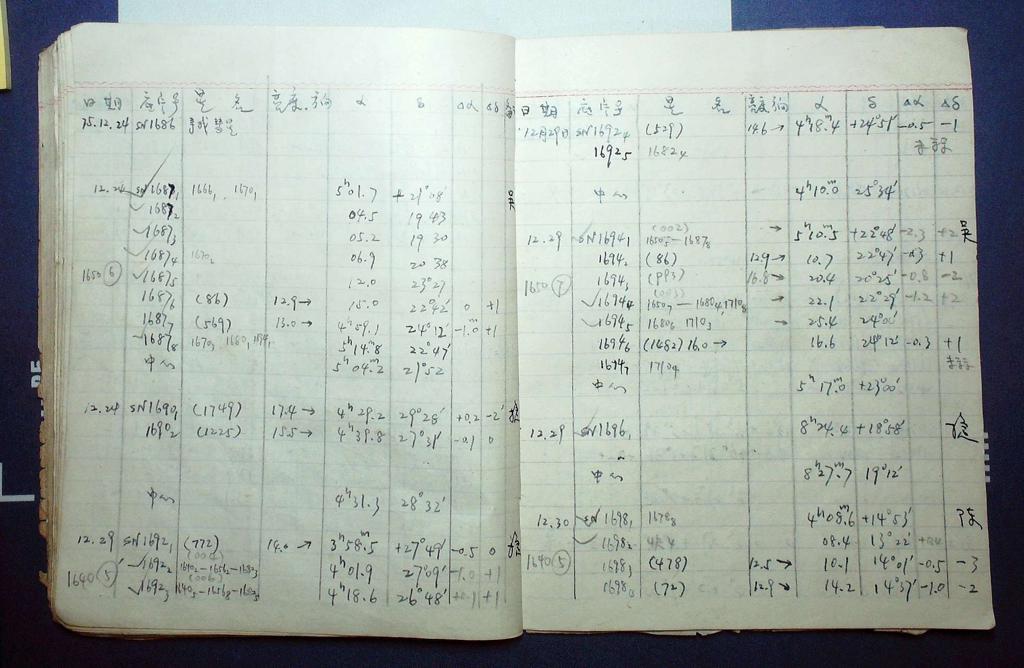 日期 底片号 星名 亮度.方向 α δ Δα Δδ
75.12.24 SN1686 寻找彗星
12.24 SN1687₁ 1666₁ 1670₁ 5ʰ01.7 +21°08′ 吴
1687₂ 04.5 19 43
1687₃ 05.2 19 30
1687₄ 1670₂ 06.9 20 38
1650 ⑥ 1687₅ 12.0 23°27
1687₆ (86) 12.9→ 15.0 22°42′ 0 +1
1687₇ (569) 13.0→ 4ʰ59.1ᵐ 24°12′ -1.0 +1
1687₈ 5ʰ14ᵐ.8 22°47′
中心 5ʰ04ᵐ.2 21°52
12.24 SN1690₁ (1749) 17.4→ 4ʰ29.2 29°28′ +0.2 -2′
1690₂ (1225) 15.5→ 4ʰ39.8 27°31′ -0.1 0
中心 4ʰ31.3 28°32′
12.29 SN1692₁ (772) 14.0→ 3ʰ58ᵐ.5 +27°49′ -0.5 0
1640 ⑤ 1692₂ 4ʰ01.9 27°09′ -1.0 +1
1692₃ 4ʰ18.6 26°48′ +1
日期 底片号 星名 亮度方向 α δ Δα Δδ
12月29日 SN1692₄ (529) 14.6→ 4ʰ18ᵐ.4 +24°51′ -0.5 -1
1692₅ 1682₄
中心 4ʰ10.0ᵐ 25°34′
(002)
12.29 SN1694₁ 1650₅—1687₈ → 5ʰ10ᵐ.5 +22°48′ -2.3 +2 吴
1694₂ (86) 12.9→ 10.7 22°47′ +1
1650 ⑦ 1694₃ (PP3) 16.8→ 20.4 20°25′ -0.8 -2
(003)
1694₄ 1650₇—1680₄,1710₈ → 22.1 22°29′ -1.2 +2
1694₅ 1680₆ 1710₃ → 25.4 24°00′
1694₆ (1482) 16.0→ 16.6 24°12′ -0.3 +1
1694₇ 1710₉
中心 5ʰ17ᵐ.0 +23°00′
12.29 SN1696₁ 8ʰ24ᵐ.4 +18°58′
中心 8ʰ27ᵐ.7 19°12′
12.30 SN1698₁ 1678₈ 4ʰ08ᵐ.6 +14°53′ 陈
1698₂ 08.4 13°22′
1640 ⑤ 1698₃ (478) 12.5→ 10.1 14°01′ -0.5 -3
(72) 12.9→ 14.2 14°37′ -1.0 -2